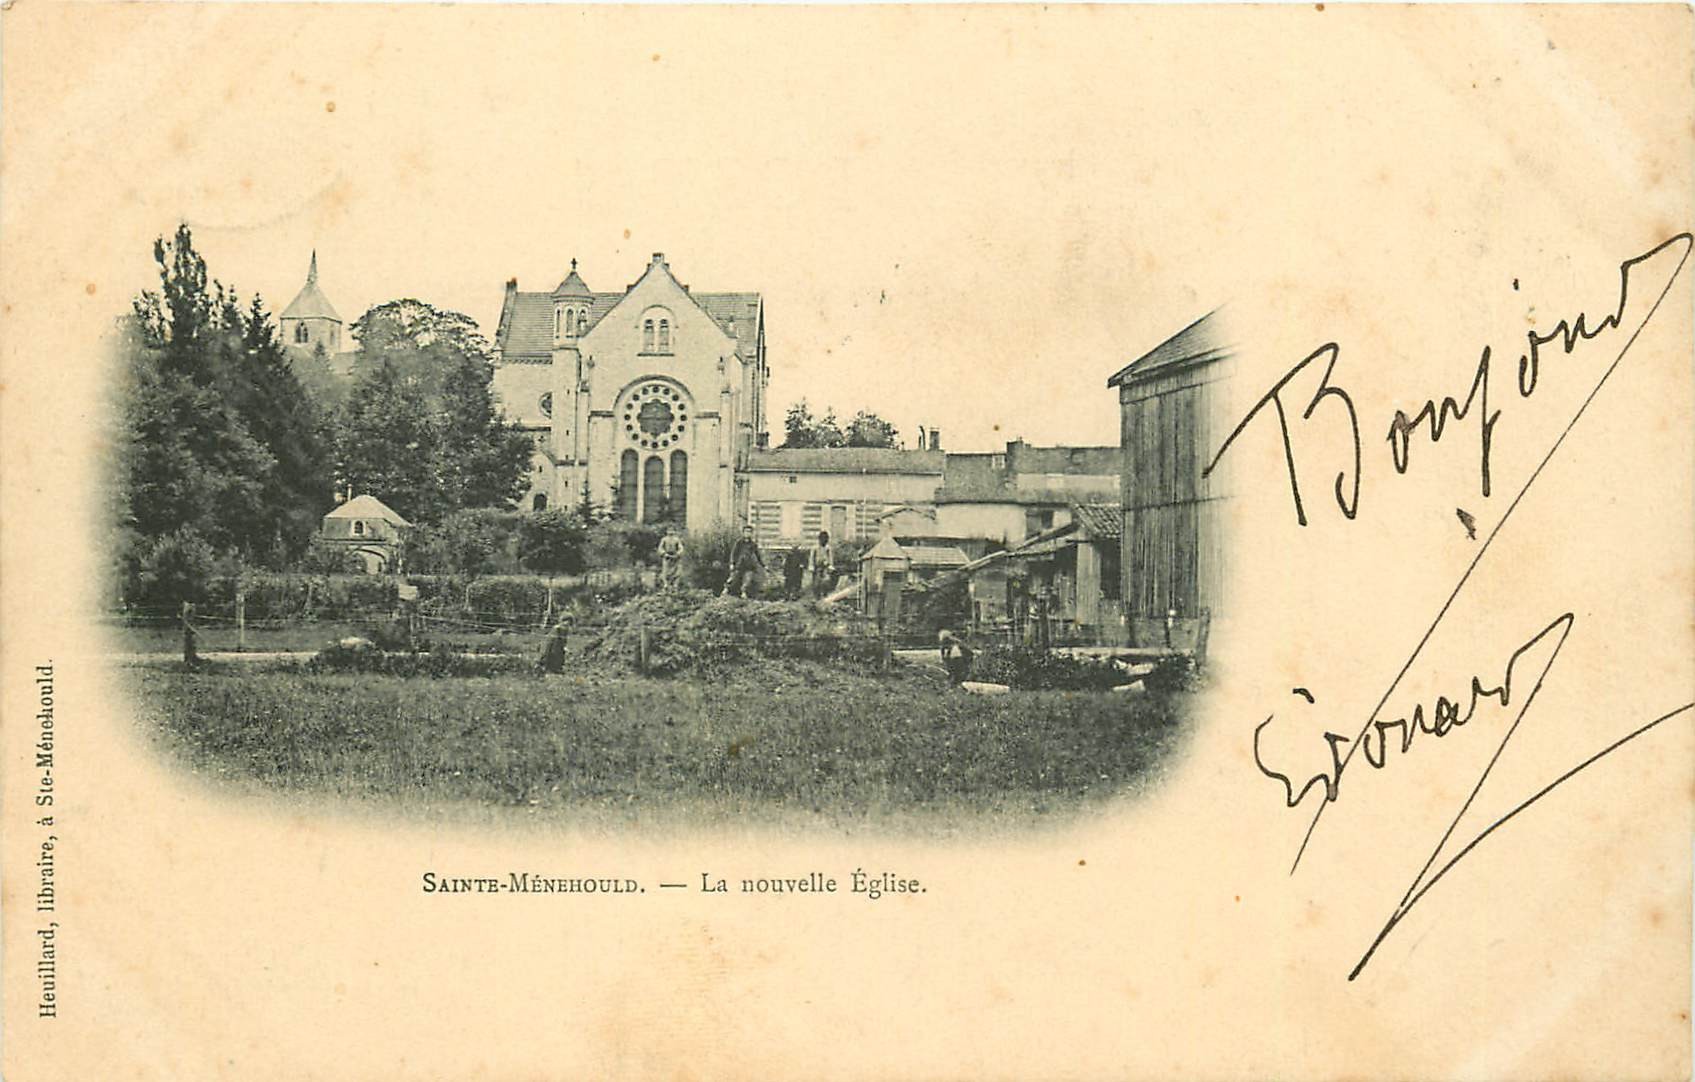 Bonjour
Edouard
SAINTE-MÉNEHOULD. — La nouvelle Église.
Heuillard, libraire, à Ste-Ménehould.